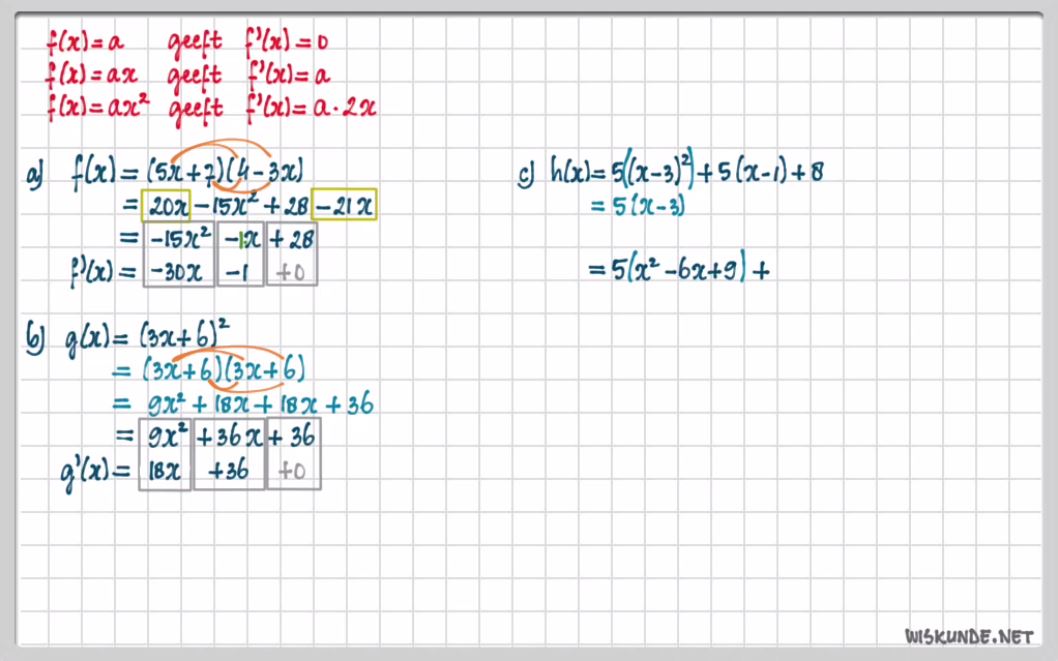 f(x) = a geeft f'(x) = 0
f(x) = ax geeft f'(x) = a
f(x) = ax² geeft f'(x) = a · 2x
a) f(x) = (5x+7)(4-3x)
= 20x - 15x² + 28 - 21x
= -15x² - 1x + 28
f'(x) = -30x - 1 + 0
b) g(x) = (3x+6)²
= (3x+6)(3x+6)
= 9x² + 18x + 18x + 36
= 9x² + 36x + 36
g'(x) = 18x + 36 + 0
c) h(x) = 5((x-3)²) + 5(x-1) + 8
= 5(x-3)
= 5(x² - 6x + 9) +
WISKUNDE.NET